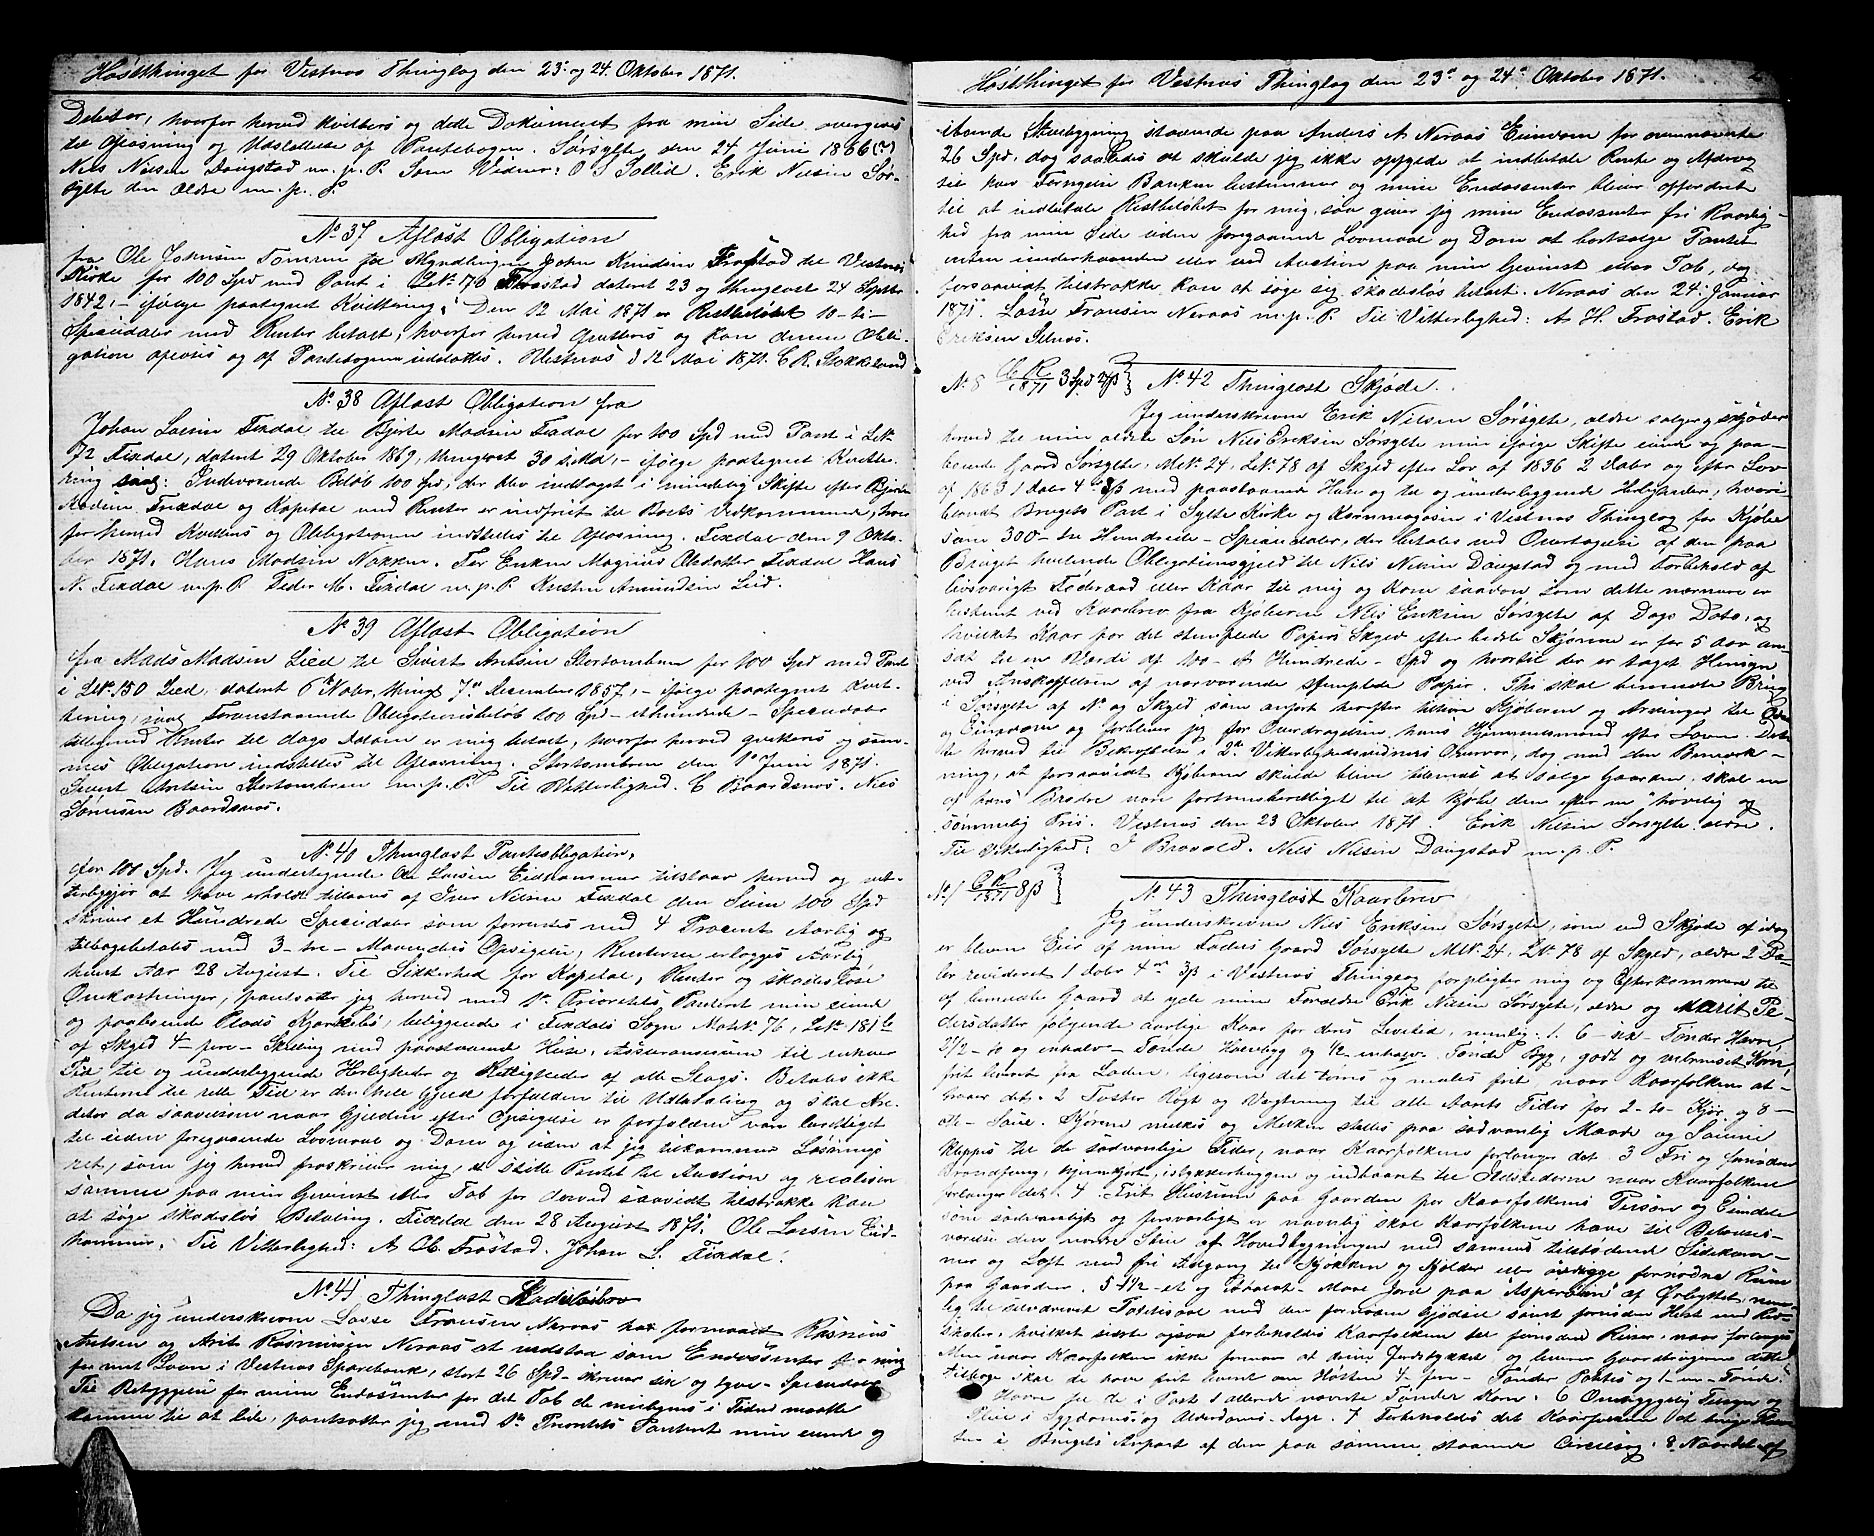 Høstthinget for Vestnæs Thinglag den 23de og 24. Oktober 1871.
Debitor, hvorfor herved kvitteres og dette Dokument fra min Side overgives
til Aflæsning og Udslettelse af Pantebogen. Sørsylte den 24 Juni 1866(?)
Nils Nilsen Daugstad m. p. P. Som Vidner: O S Sollid. Erik Nilsen Sør-
sylte den Ældre m. p. P.
No 37 Aflæst Obligation
fra Ole Johnsen Tomren til Myndlingen John Knudsen Frostad til Vestnæs
Kirke for 100 Spd med Pant i LNo 70 Frostad dateret 23 og thinglæst 24 Septbr
1842, - ifølge paategnet Kvittering: Den 12 Mai 1871 er Restbeløbet 10 - ti -
Speciedaler med Renter betalt, hvorfor herved qvitteres og kan denne Obli-
gation aflæses og af Pantebogen udslettes. Vestnæs d 12 Mai 1871. C R. Stokkeland
No 38 Aflæst Obligation fra
Johan Larsen Fixdal til Bjerte Madsen Fixdal for 100 Spd med Pant i LNo
72 Fixdal, dateret 29 Oktober 1869, thinglæst 30 s. Md, - ifølge paategnet Kvitte-
ring saal: Indeværende Beløb 100 Spd, der blev indtaget i mindelig Skifte efter
Madsen Fixdal og Kapital med Renter er indfriet til Boets Vedkommende, hvor
for herved kvitteres og Obligationen indstilles til Aflæsning. Fixdal den 9 Okto-
ber 1871. Hans Madsen Nakken. For Enken Magnus Olsdatter Fixdal Hans
N. Fixdal m. p. P. Peder M. Fixdal m. p. P. Knut Amundsen Lied.
No 39 Aflæst Obligation
fra Mads Madsen Lied til Sivert Antsen Stortombren for 100 Spd med Pant
i LNo 150 Lied, dateret 6te Nobr, thingl 7de December 1857, - ifølge paategnet Kvit-
tering, saal: Foranstaaende Obligationsbeløb 100 Spd - ethundrede - Speciedaler
tilligemed Renter til dags Datum er mig betalt, hvorfor herved qvitteres og sam-
mes Obligation indstilles til Aflæsning. Stortombren den 1ste Juni 1871.
Sivert Antsen Stortombren m. p. P. Til Vitterlighed. C Baardsnæs. Nils
Sørensen Baardsnæs.
No 40 Thinglæst Panteobligation,
for 100 Spd. Jeg undertegnede Ole Larsen Eidhammer tilstaar herved og vit-
terliggjør at have erholdt tillaans af Iver Nilsen Fixdal den Sum 100 Spd
skriver et Hundrede Speciedaler som forrentes med 4 Procent Aarlig og
tilbagebetales med 3 - tre - Maaneders Opsigelse, Renterne erlægges Aarlig
hvert Aar 28 August. Til Sikkerhed for Kapital, Renter og skadesløse
Omkostninger, pantsætter jeg herved med 1ste Prioritets Panteret min eiende
og paaboende Plads beliggende i Fixdals Sogn MatrNo 76, LNo 181b
af Skyld 4 - fire - Skilling med paastaaende Huse, Assurancesum til enhver
Tid til og underliggende Herligheder og Rettigheder af alle Slags. Betales ikke
Renterne til rette Tid er den hele Gjeld forfalden til Udbetaling og skal Kre-
ditor da saavelsom naar Gjelden efter Opsigelse er forfalden være berettiget
til uden foregaaende Lovmaal og Dom og uden at jeg tilkommer Løsnings
ret, som jeg herved fraskriver mig, at stille Pantet til Auction og realisere
samme paa min Gevinst eller Tab for derved saavidt tilstrække kan
at søge skadesløs Betaling. Fixdal den 28 August 1871. Ole Larsen Eid-
hammer. Til Vitterlighed: A Ol. Frostad. Johan L. Fixdal.
No 41 Thinglæst Skadesløsbrev
Da jeg underskrevne Lasse Fransen Neraas har formaaet Rasmus
Antsen og Arit Rasmusen Neraas at indstaa som Endossenter for mig
for mit Laan i Vestnæs Sparebank, stort 26 Spd - skriver sex og tyve - Speciedaler
Til Betryggelse for mine Endossenter for det Tab de muligens i Tiden maatte
komme til at lide, pantsætter jeg med 1ste Prioritets Panteret min eiende og
Høstthinget for Vestnæs Thinglag den 23de og 24de Oktober 1871.
iboende Stuebygning staaende paa Anders A Neraas Eiendom for ovennævnte
26 Spd, dog saaledes at skulde jeg ikke opfylde at indbetale Rente og Afdrag
til hver Termin Banken bestemmer og mine Endossenter bliver opfordret
til at indbetale Restbeløbet for mig, saa giver jeg mine Endossenter fri Raadig-
hed fra min Side uden foregaaende Lovmaal og Dom at bortsælge Pantet
enten underhaanden eller ved Auction paa min Gevinst eller Tab, dog
forsaavidt tilstrække kan at søge sig skadesløs betalt. Neraas den 24. Januar
1871. Lasse Fransen Neraas m. p. P. Til Vitterlighed: A H. Frostad. Erik
Eriksen Sælnæs.
No 8 C. R. / 1871 3 Spd 24 ß } No 42 Thinglæst Skjøde.
Jeg underskrevne Erik Nilsen Sørsylte, ældre sælger og skjøder
herved til min ældste Søn Nils Eriksen Sørsylte min ifølge Skifte eiende og paa-
boende Gaard Sørsylte, MNo 24, LNo 78 af Skyld efter Lov af 1836 2 Daler og efter Lov
af 1863 1 Daler 4 ort 3 ß med paastaaende Huse og til og underliggende Herligheder, hvori-
blandt Brugets Part i Sylte Kirke og Kornmagasin i Vestnæs Thinglag for Kjøbe
sum 300 - tre Hundrede - Speciedaler, der betales ved Overtagelse af den paa
Bruget heftende Obligationsgjeld til Nils Nilsen Daugstad og med Forbehold af
livsvarigt Føderaad eller Kaar til mig og Kone saavel som dette nærmere er
bestemt ved Kaarbrev fra Kjøberen Nils Eriksen Sørsylte af Dags Dato, og
hvilket Kaar for det stemplede Papirs Skyld efter bedste Skjønne er for 5 Aar an-
sat til en Værdi af 100 - et Hundrede - Spd og hvortil der er taget Hensyn
ved Anskaffelsen af nærværende stemplede Papir. Thi skal bemeldte Brug
i Sørsylte af No og Skyld som anført herefter tilhøre Kjøberen og Arvinger til Odel
og Eiendom og forbliver jeg for Overdragelsen hans Hjemmelsmand efter Loven. Dette
til herved til Bekræftelse i 2de Vitterlighedsvidners Overvær, dog med den Bemærk-
ning, at forsaavidt Kjøberen skulde blive tilsinds at sælge Gaarden, skal en
af hans Brødre være fortrinsberettiget til at kjøbe den efter en "høvelig og
sømmelig Pris. Vestnæs den 23 Oktober 1871. Erik Nilsen Sørsylte ældre.
Til Vitterlighed: J Bravold. Nils Nilsen Daugstad m. p. P.
No 1 C. R. / 1871 8 ß } No 43 Thinglæst Kaarbrev
Jeg underskrevne Nils Eriksen Sørsylte, som ved Skjøde af idag
er bleven Eier af min Faders Gaard Sørsylte MNo 24, LNo 78 af Skyld, ældre 2 Da-
ler revideret 1 Daler 4 ort 3 ß i Vestnæs Thinglag forpligter mig og Efterkommere til
af bemeldte Gaard at yde mine Forældre Erik Nilsen Sørsylte, ældre og Marit Pe-
dersdatter følgende aarlige Kaar for deres Levetid, nemlig: 1. 6 - sex - Tønder Havre,
2 1/2 - to og enhalv - Tønde Havrebyg og 1/2 - enhalv. Tønde Byg, godt og velrenset Korn,
frit leveret fra Laden, ligesom det tørres og males frit, naar Kaarfolkene at-
traar det. 2 Foster Røgt og Vogtning til alle Aarets Tider for 2 - to - Kjør og 8 -
otte - Sauer. Kjørene melkes og Melken stelles paa sædvanlig Maade og Sauerne
klippes til de sædvanlige Tider, naar Kaarfolkene forlanger det. 3 Fri og fornøden
Brændfang, hjemkjørt, istykkerhugget og indbaaret til Ildstederne naar Kaarfolkene
forlanger det. 4 Frit Husrum paa Gaarden for Kaarfolkenes Person og Eiendele
som sædvanligt og forsvarligt er navnlig skal Kaarfolkene have til Beboels-
værelse den nordre Stue af Hovedbygningen med sammes tilstødende Sidekam-
mer og Loft med fri Adgang til Kjøkken og Kjelder eller øvrige fornødne Rum
paa Gaarden. 5 4 1/2 - et og - Maal Jord paa "Aspereiten" af Ørlykket, nem-
lig til Potetesaae med den fornødne Gjødsel samt fornøden Hest med Red-
skaber, hvilket sidste ogsaa forbeholdes Kaarfolkene til fornødne Reiser, naar forlanges
Men naar Kaarfolkene ikke formaar at drive Jordstykket og leverer Gaardbrugeren dette
tilbage skal de have frit leveret om Høsten 4 - fire - Tønder Potetes og 1 - en - Tønde
Havre for de i Post 1 allerede nævnte Tønder Korn. 6 Omhyggelig Tilsyn og
Pleie i Sygdoms og Alderdoms-Dage. 7 Forbeholdes det Kaarfolkene at bruge
i Brugets Anpart af den paa samme staaende Cirkelsag. 8. Naar det af